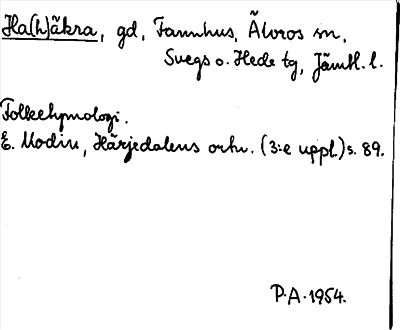 Ha(h)åkra, gd, Fannhus, Älvros sn,
Svegs o. Hede tg, Jämtl. l.
Folketymologi.
E. Modin, Härjedalens ortn. (3:e uppl.) s. 89.
P.A. 1954.